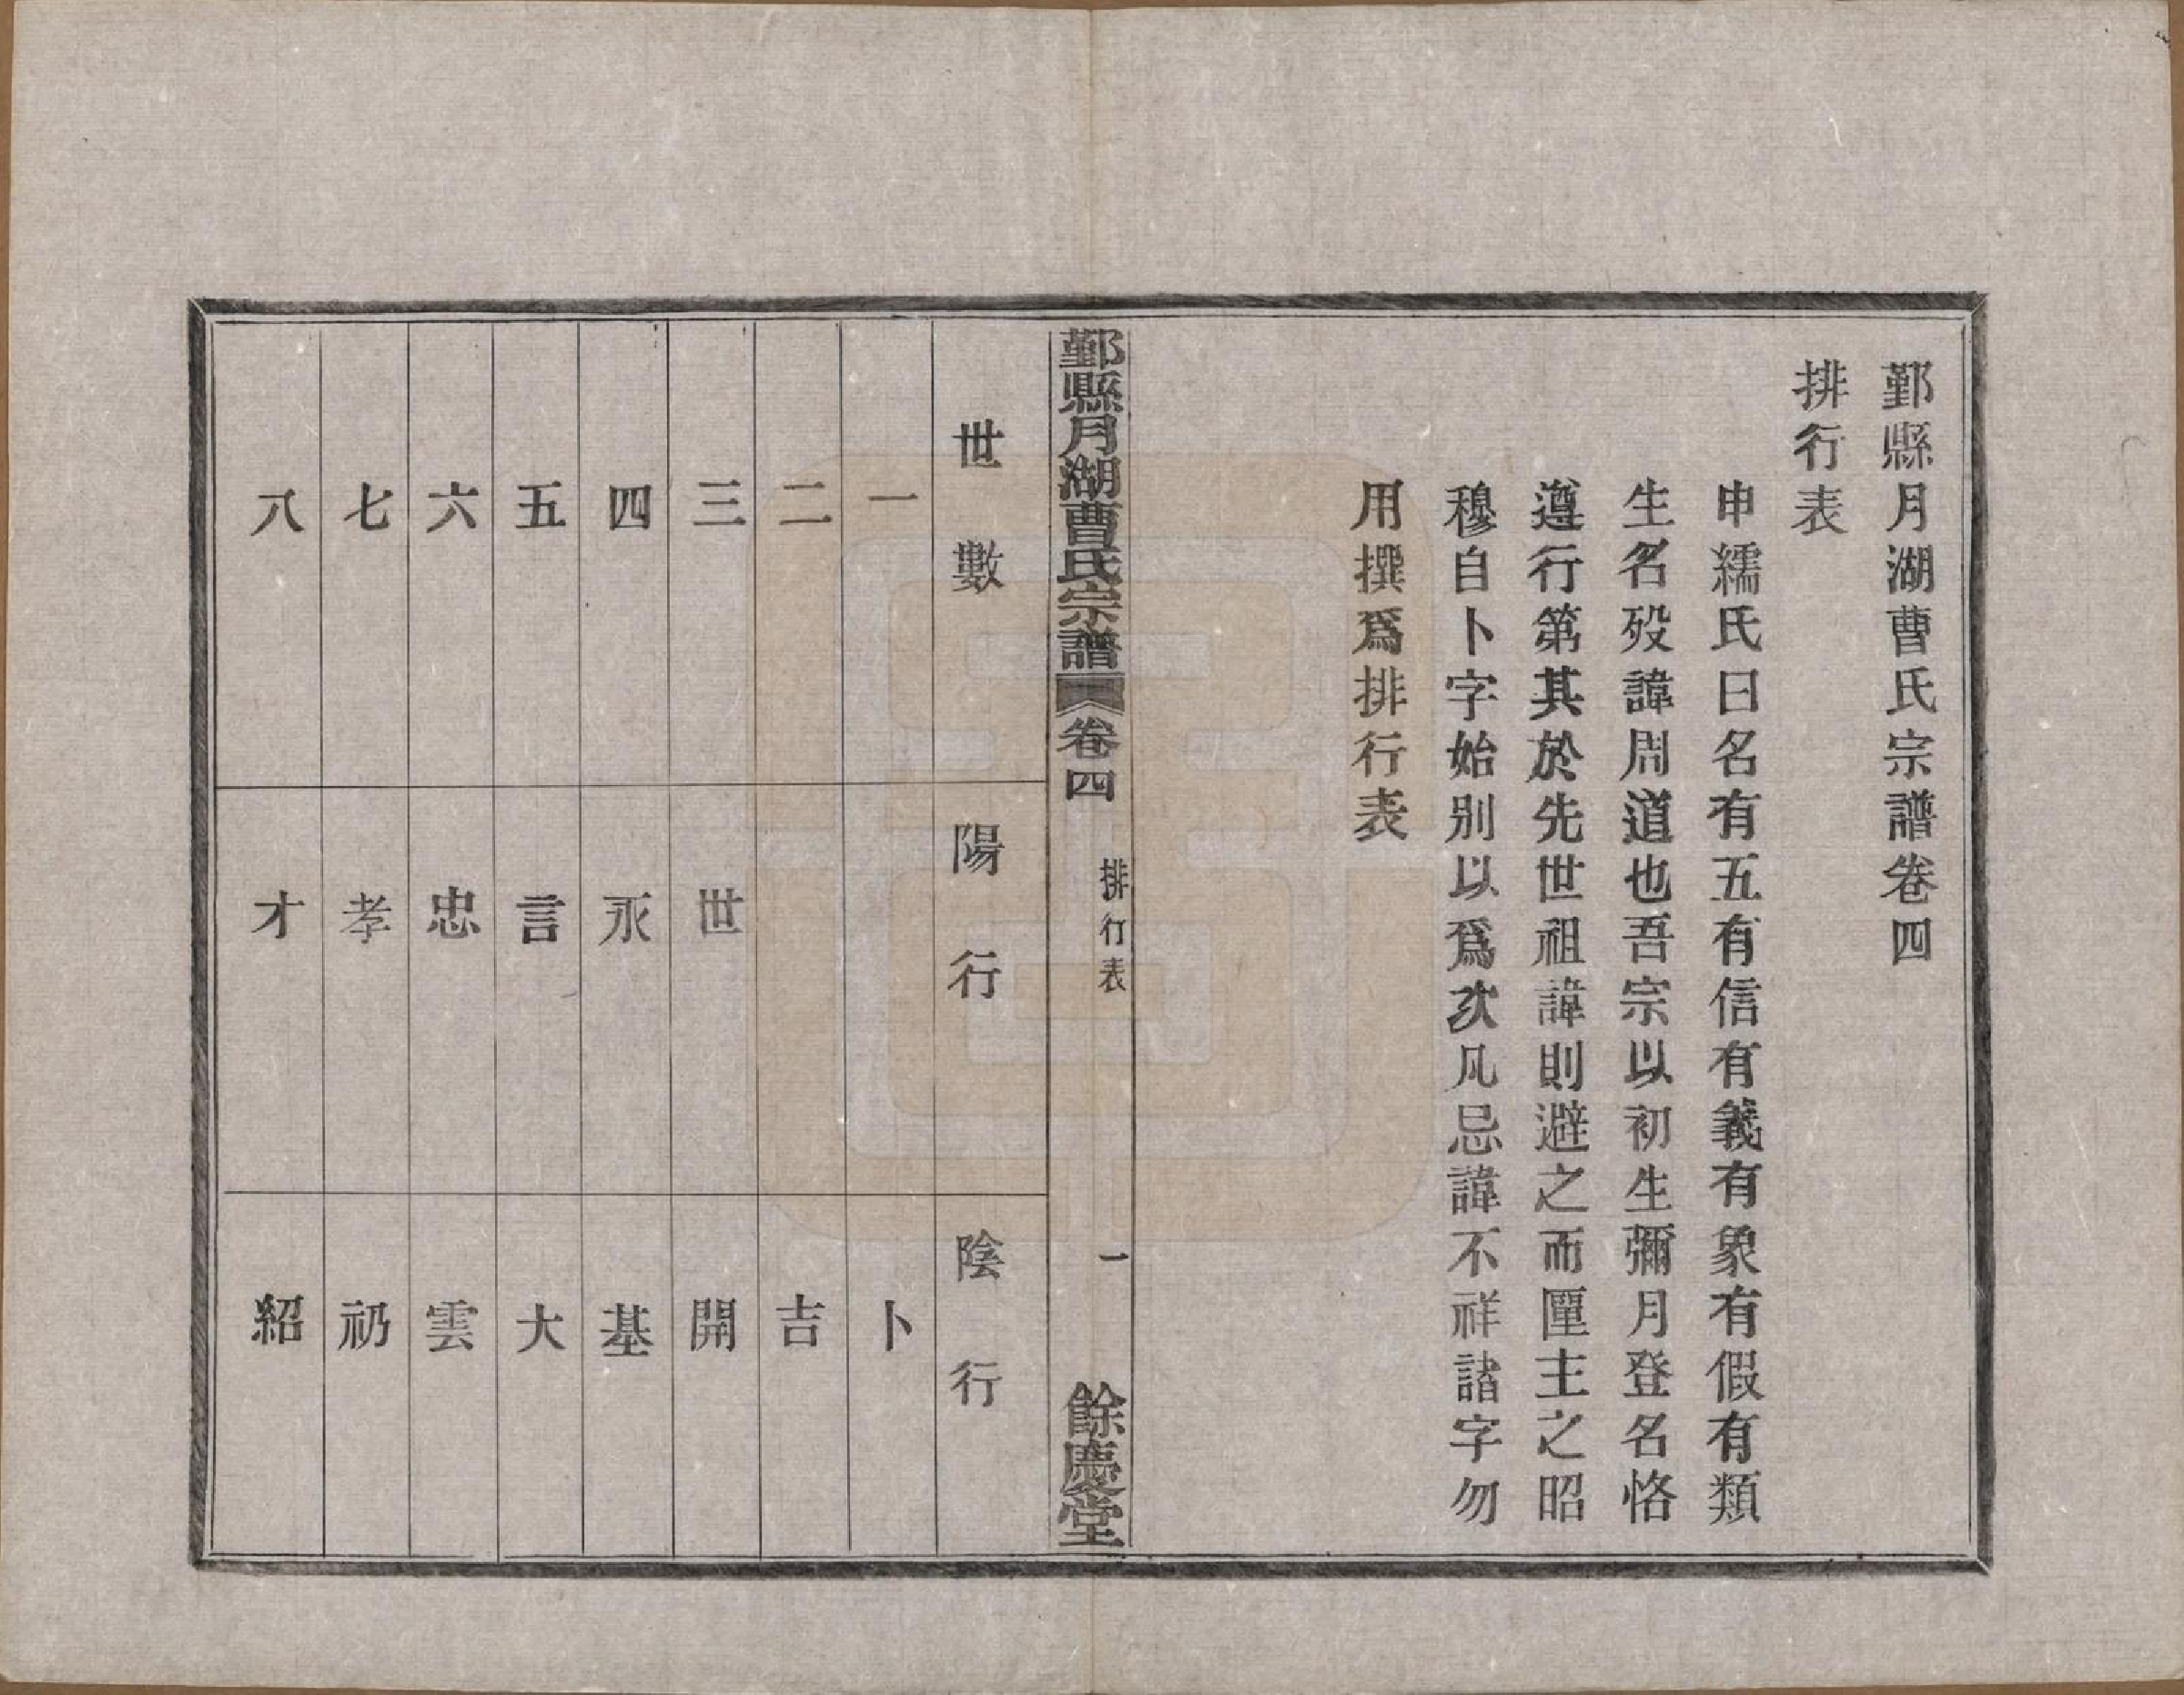 鄞縣月湖曹氏宗譜卷四
排行表
申繻氏曰名有五有信有義有象有假有類
生名歿諱周道也吾宗以初生彌月登名恪
遵行第其於先世祖諱則避之而匰主之昭
穆自卜字始別以爲次凡忌諱不祥諸字勿
用撰爲排行表
鄞縣月湖曹氏宗譜 卷四 排行表 一 餘慶堂
世數 陽行 陰行
一 卜
二 吉
三 世 開
四 永 基
五 言 大
六 忠 雲
七 孝 礽
八 才 紹